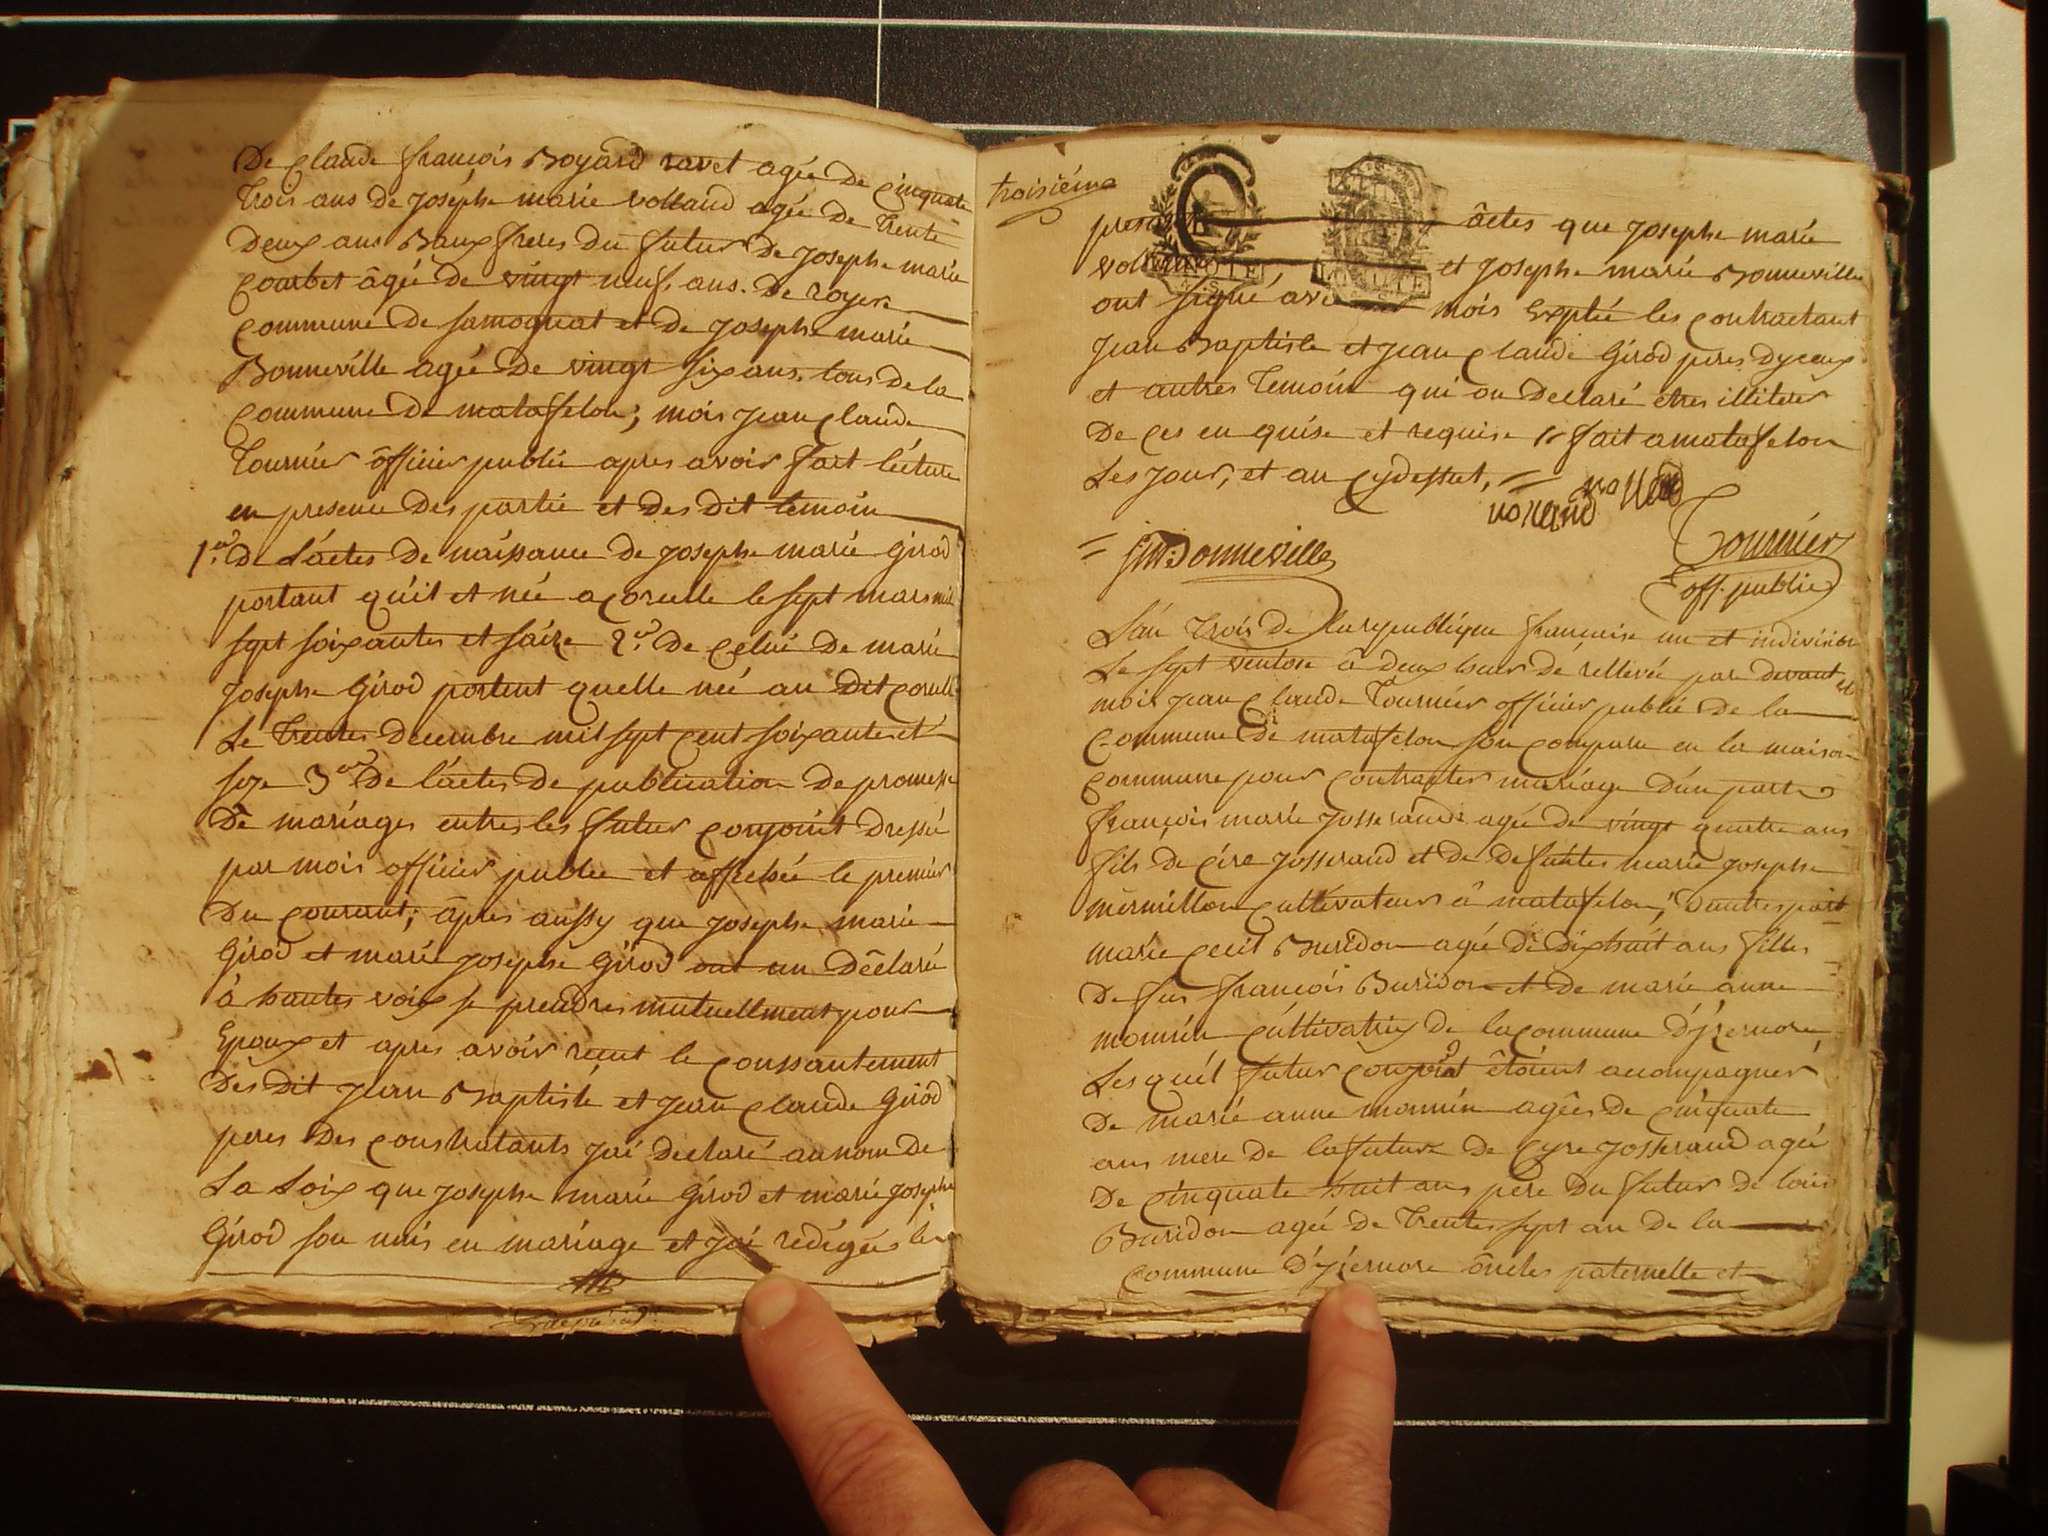 De Claude françois Boyard ravet agée de Cinquate
Trois ans de Joséphe marie volland agée de Trente
Deux ans Baux freres du futur de Josephe marie
Courbet âgée de vingt neuf ans. De royere
Commune de samognat et de Josephe marie
Bonneville agée de vingt six ans. tous de la
Commune de matafelon; mois Jean Claude
Tournier ôfficier public apres avoir fait léCture
en presence des partie et des dit temoin
1er De L'áctes de naissance de Josephe marie Girod
portant qu'il et née a Corcelle le sept mars mil
sept soixantes et saize 2.er de Celui de marie
Josephe Girod portent quelle née au dit Corcell
Le Trentes decembre mil sept Cent soixantes et
seze 3er De l'áctes de publication de promesse
De mariages entres les futur Conjoint dressé
par mois officier public et affichée le premier
Du Courant; âpres aussy que Josephe marie
Girod et marie Josephe Girod ont un Déclaré
à hautes voix se prendres mutuellment pour
Epoux et apres avoir recut le Conssantement
Des dit Jean Baptiste et Jean Claude Girod
peres des Constratants J'ai declaré au nom de
La Loix que Josephe marie Girod et marie Josephe
Girod son unis en mariage et J'ai redigés les
troisième
âctes que Josephe marie
et Josephe marie Bonneville
ont signé avec mois Exptée les Contractant
Jean Baptiste et Jean Claude Girod peres dyceux
et autres Temoin qui on Declaré etres illiterés
De Ces en quise et requise fait a matafelon
Les Jour, et an Cydessut,
volland volland
Tournier
J.M: Bonneville
off. public
L'an Trois de la republique francaise un et indivisible
Le sept ventose à deux heur de rellevée par devant
mois Jean Claude Tournier officier public de la
Commune de matafelon son Comparu en la maison
Commune pour Contracter mariage d'un part
françois marie Josserand agée de vingt quatre ans
fils de Cire Josserand et de defuntes marie Josephe
mermillon Cultivateur à matafelon; Dautres part
marie Cecil Buridon agée de Dixhuit ans filles
De feu françois Buridon et de marie anne
monnin Cultivatrix de la Commune D'yzernore
Lesquel futur Conjoint étoient accompagner
De marie anne monnin agées de Cinquate
ans mere de la future de Cyre Josserand agée
De Cinquate huit ans pere du futur de louis
Buridon agée de Trentes sept an de la
Commune D'yzernore ôncles paternelle et